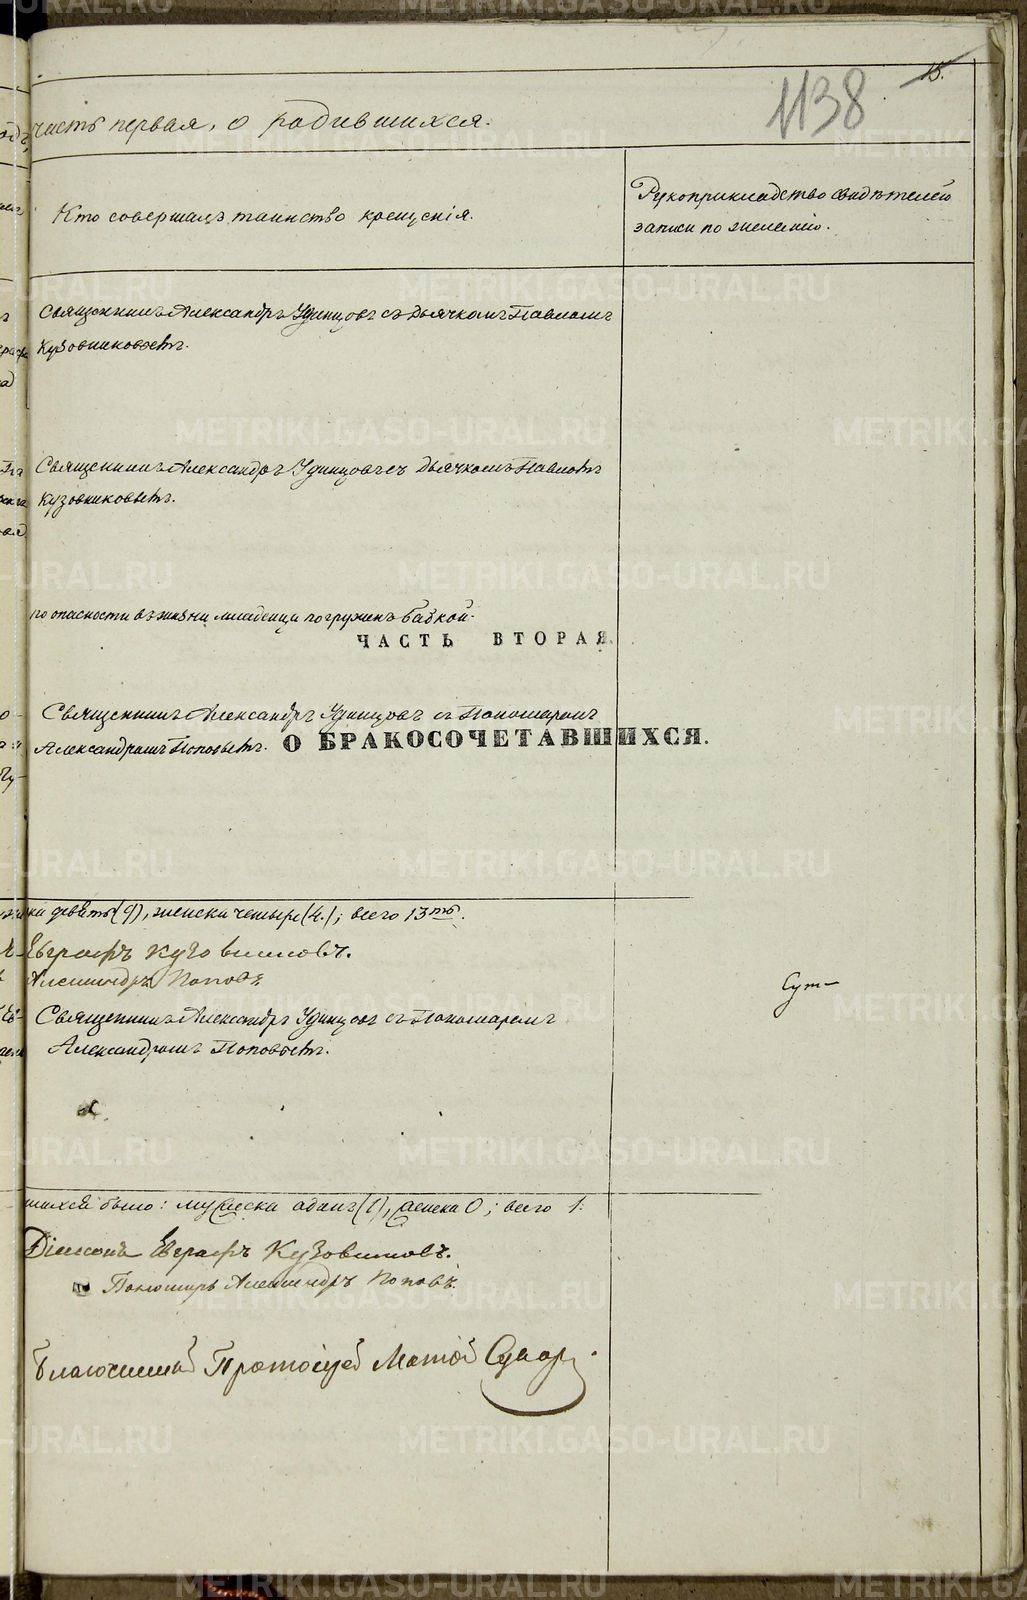 15.
1138
часть первая, о родившихся.
Кто совершалъ таинство крещенія.
Рукоприкладство свидѣтелей
записи по желанію.
Священникъ Александръ Удинцовъ съ Дьячкомъ Павломъ
Кузовниковымъ.
Священникъ Александръ Удинцовъ съ Дьячкомъ Павломъ
Кузовниковымъ.
по опасности въ жизни младенца погруженъ бабкой.
ЧАСТЬ ВТОРАЯ.
Священникъ Александръ Удинцовъ съ Пономаремъ
Александромъ Поповымъ.
О БРАКОСОЧЕТАВШИХСЯ.
девять (9), женска четыре (4.); всего 13ть.
Евграфъ Кузовниковъ.
Александръ Поповъ
Священникъ Александръ Удинцовъ съ Пономаремъ
Александромъ Поповымъ.
шихся было: мужеска одинъ (1), женска 0; всего 1.
Діаконъ Евграфъ Кузовниковъ.
Пономарь Александръ Поповъ.
Благочинный Протоіерей
METRIKI.GASO-URAL.RU